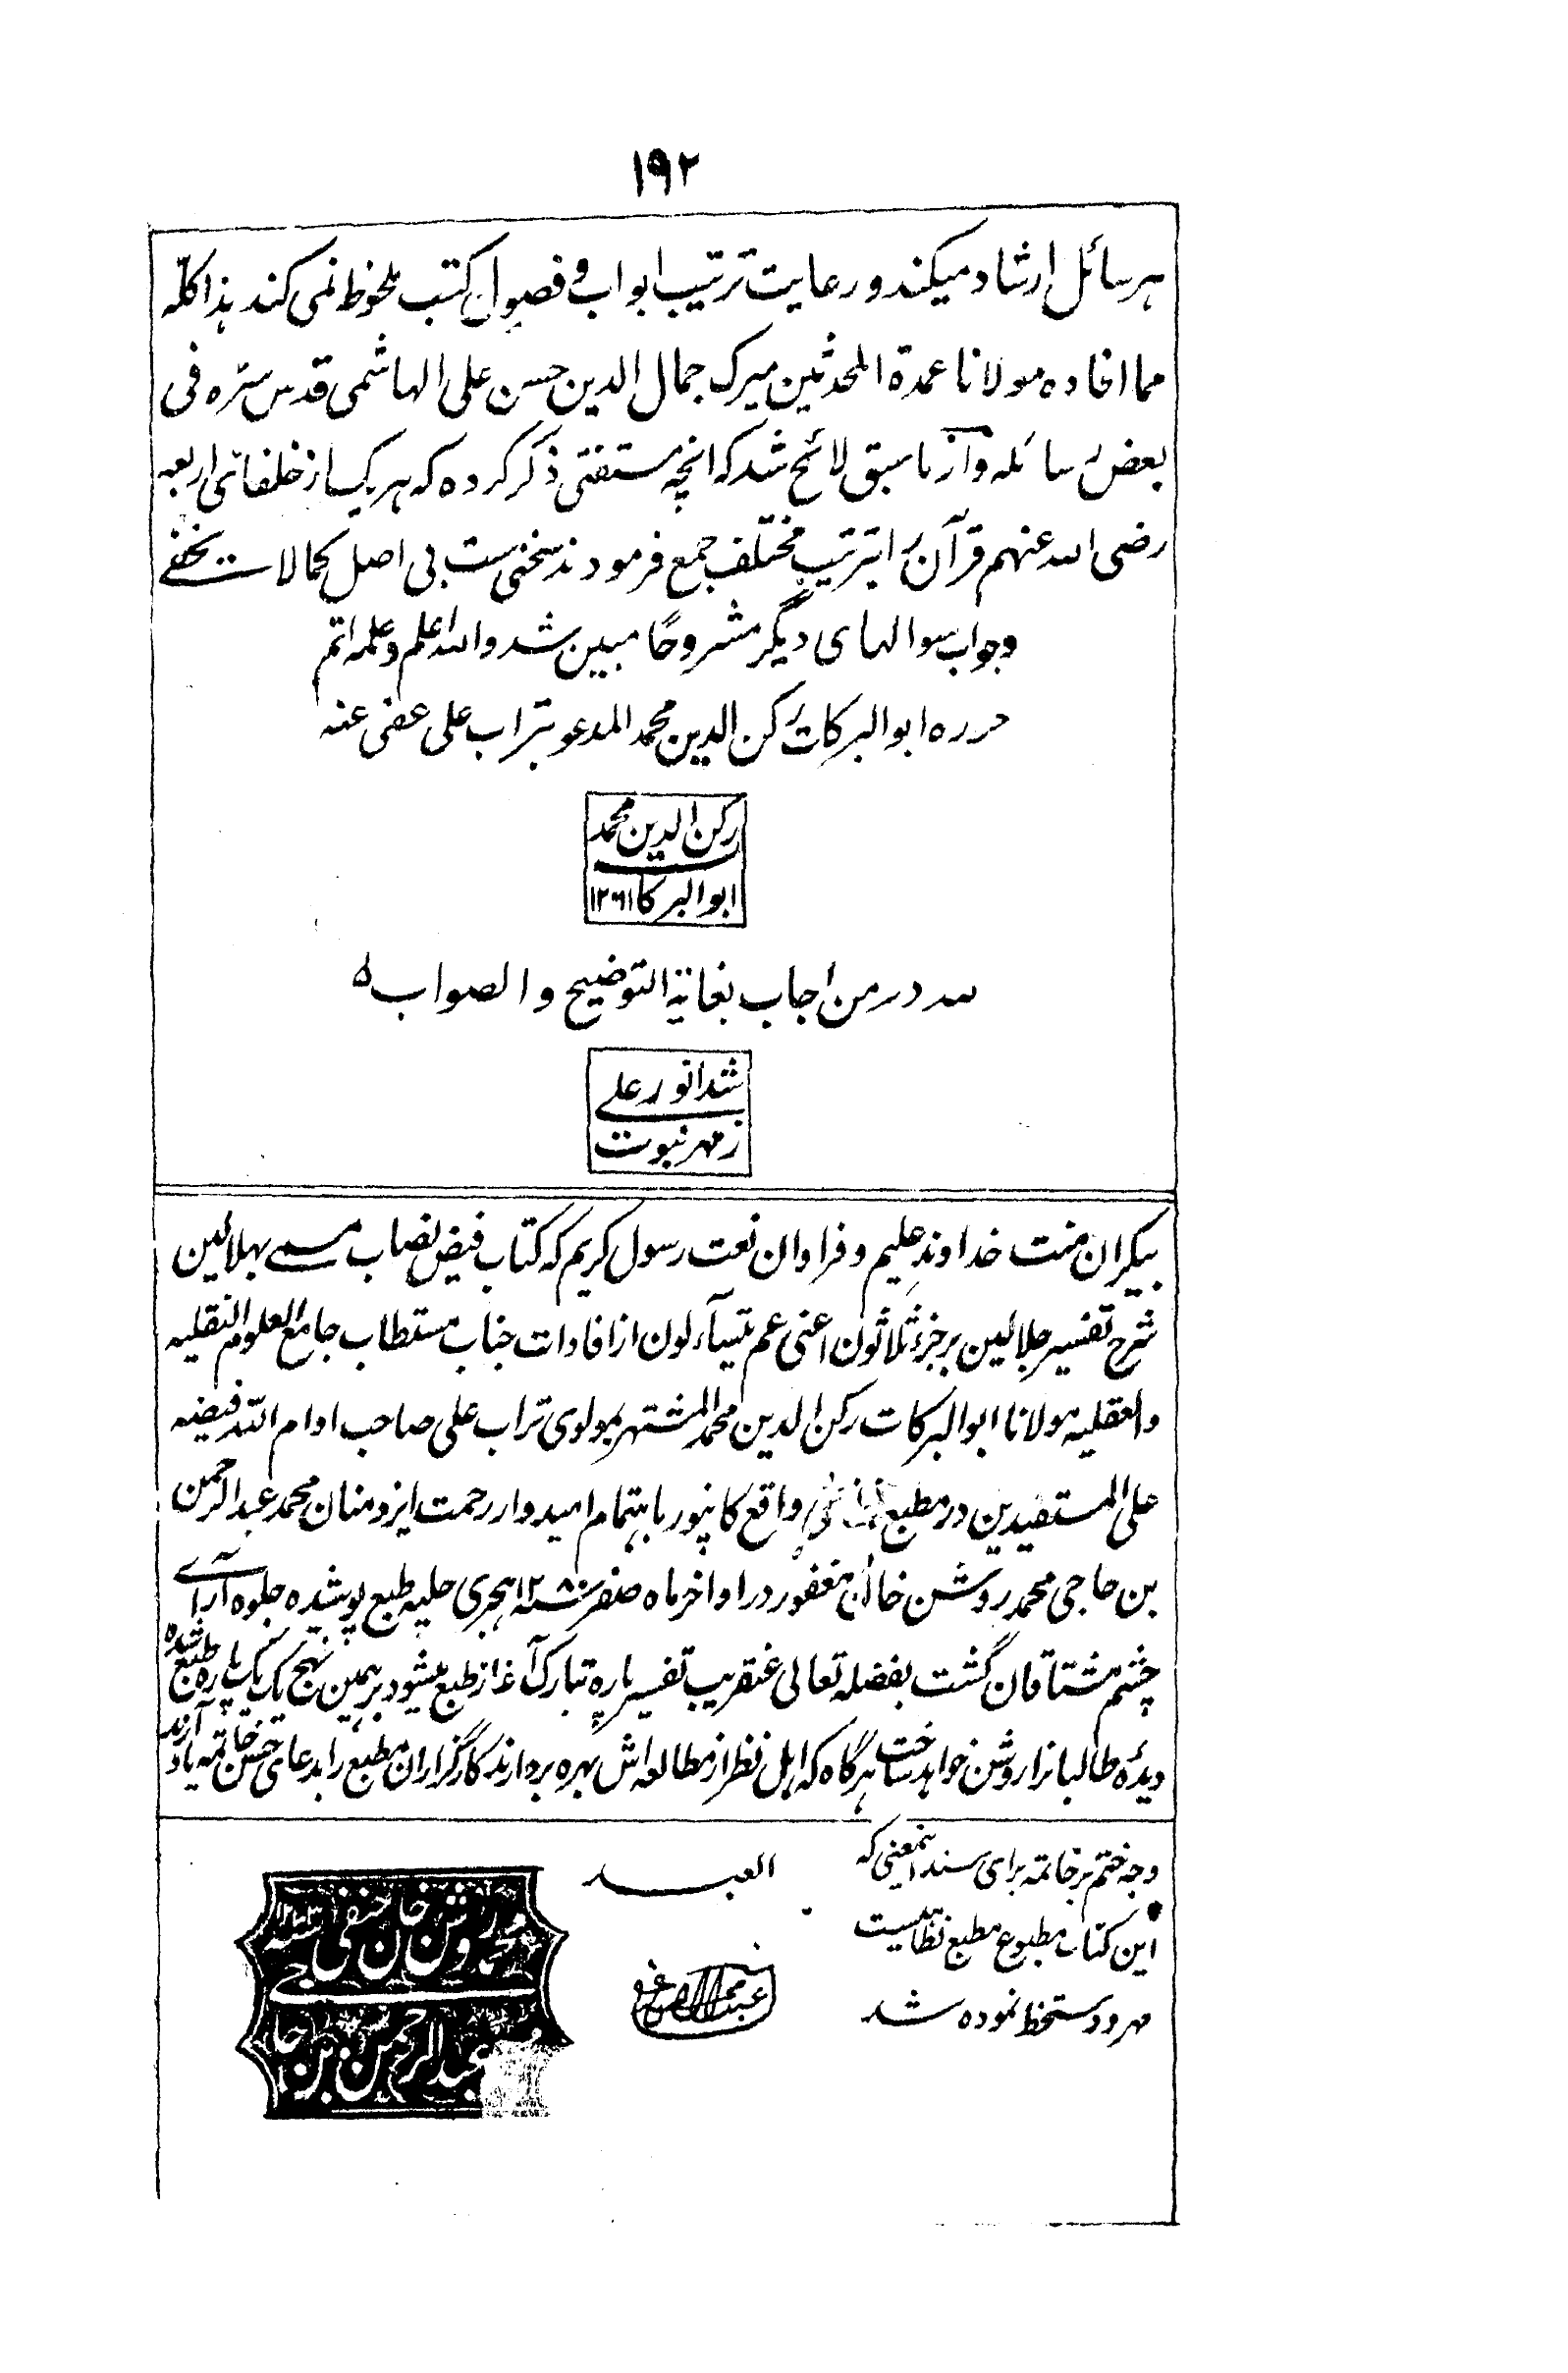 ۱۹۲
هر سائل ارشاد میکند و رعایت ترتیب ابواب و فصول کتب ملحوظ نمی کند هذا کله
مما افاده مولانا عمدة المحدثین میرک جمال الدین حسن علی الهاشمی قدس سره فی
بعض رسائله و از ما سبق لائح شد که انچه مستفتی ذکر کرده که هر یک از خلفائی اربعه
رضی الله عنهم قرآن را بترتیب مختلف جمع فرمودند سخنی ست بی اصل کما لا یخفے
وجواب سوالهای دیگر مشروحا مبین شد والله اعلم وعلمه اتم
حرره ابوالبرکات رکن الدین محمد المدعو بتراب علی عفی عنه
رکن الدین محمد
ابوالبرکات ۱۲۶۱
لله در من اجاب بغایة التوضیح والصواب
شد انور علے
ز مهر نبوت
بیکران منت خداوند علیم و فراوان نعت رسول کریم که کتاب فیض نصاب مسمے بهلالین
شرح تفسیر جلالین بر جزء ثلاثون اعنی عم یتسآءلون از افادات جناب مستطاب جامع العلوم النقلیه
والعقلیه مولانا ابوالبرکات رکن الدین محمد المشتهر بمولوی تراب علی صاحب ادام الله فیضه
علی المستفیدین در مطبع واقع کانپور باهتمام امیدوار رحمت ایزد منان محمد عبدالرحمن
بن حاجی محمد روشن خان مغفور در اواخر ماه صفر سنه ۱۲۸۰ هجری حلیه طبع پوشیده جلوه آراے
چشم مشتاقان گشت بفضله تعالی عنقریب تفسیر پاره تبارک آغاز طبع میشود بر همین نهج یک یک پاره طبع شده
دیدۀ طالبانرا روشن خواهد ساخت هرگاه که اهل نظر از مطالعه اش بهره بردارند کارگزاران مطبع را بدعای حسن خاتمه یاد آرند
وجه ختم بر خاتمه برای سند اینمعنی که
این کتاب مطبوع مطبع نظامیست
مهر و دستخط نموده شد
العبد
محمد روشن خان حنفی
عبدالرحمن بن حاجی